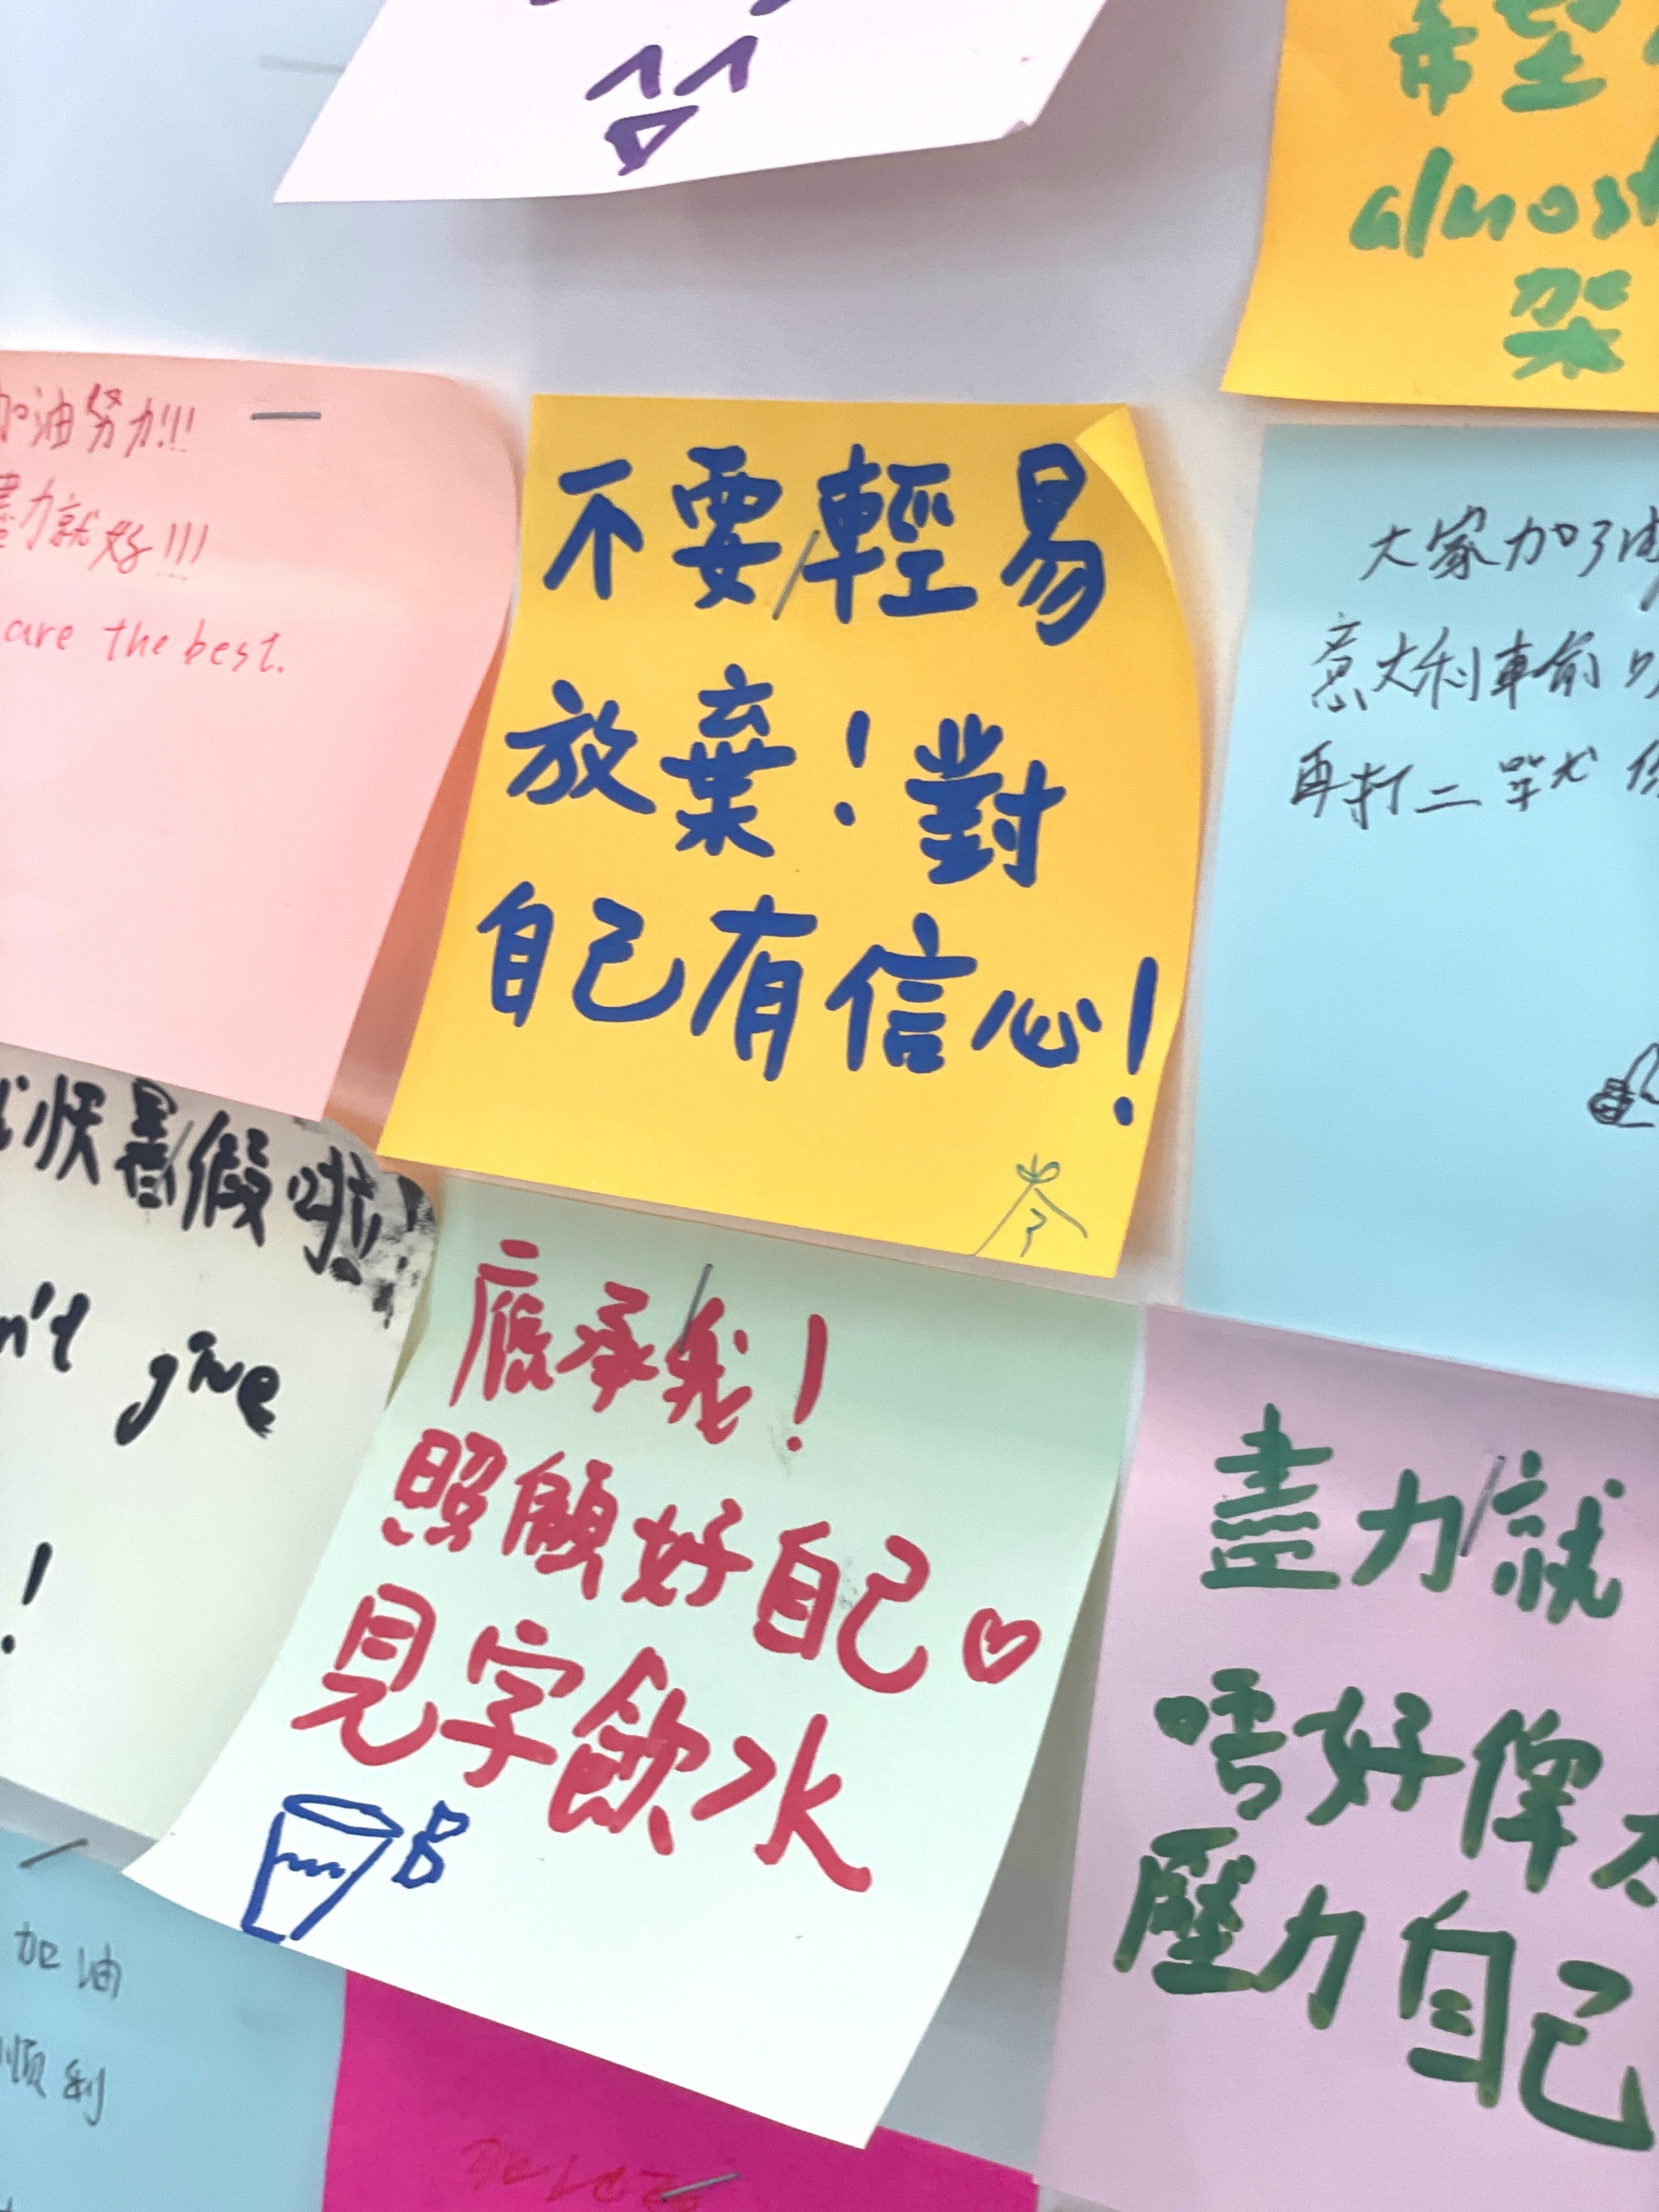 希望
almost
架
加油努力!!!
盡力就好!!!
are the best.
不要輕易
放棄！對
自己有信心！
大家加油
意大利車輸
再打二單
快暑假啦！
n't give
!
應承我！
照顧好自己♡
見字飲水
盡力就
唔好俾太
壓力自己
加油
順利